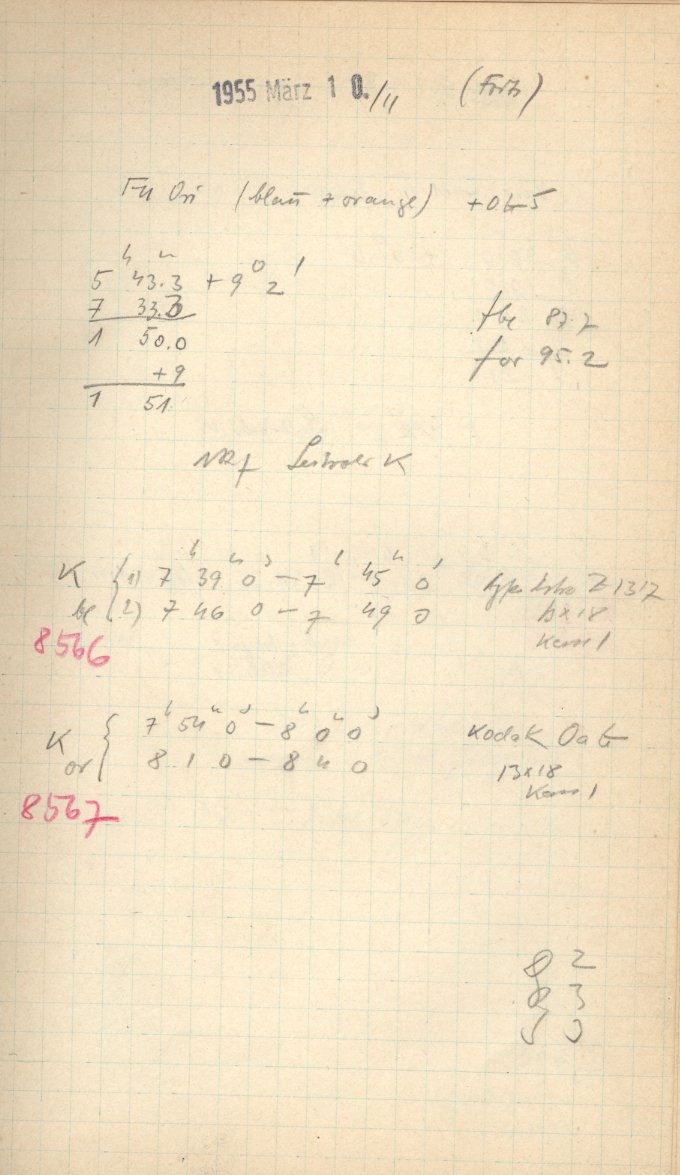 1955 März 10./11 (Forts)
FU Ori (blau + orange)
5 h 43.3 m + 9° 2'
7 33.3
1 50.0
+9
1 51
f bl 87.7
f or 95.2
K
K { 1) 7 h 39 m 0 s – 7 h 45 m 0 s Z1317
bl { 2) 7 46 0 – 7 49 0 13x18
8566 Kass 1
K { 7 h 54 m 0 s – 8 h 0 m 0 s Kodak OaG
or { 8 1 0 – 8 4 0 13x18
Kass 1
8567
8 2
8 3